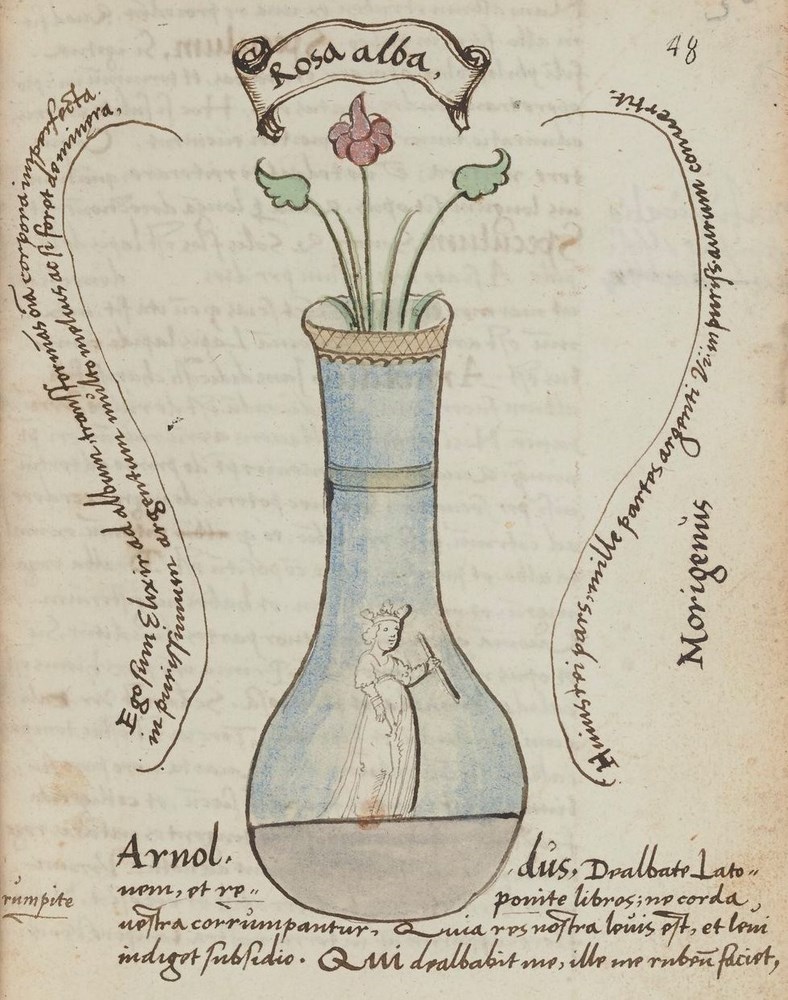 48
Rosa alba,
Ego sum Elixir ad album, transformās oīa corpora imperfecta
in purissimum argentum multo melius ac si foret de minera,
Huius rei pars: una mille partes argenti Vi: in puriss: aurum convertit.
Morigenus
Arnol. dus. Dealbate Lato=
nem, et re= ponite libros; ne corda,
rumpite
vestra corrumpantur, Quia res nostra levis est, et levi
indiget subsidio. Qui dealbabit me, ille me rubeū faciet,